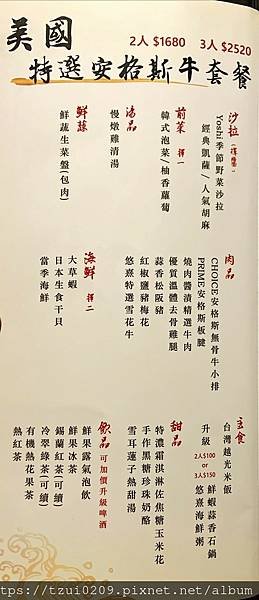 美國
2人 $1680 3人 $2520
特選安格斯牛套餐
沙拉(擇醬一)
Yoshi季節野菜沙拉
經典凱薩/人氣胡麻
前菜 擇一
韓式泡菜/柚香蘿蔔
湯品
慢燉雞清湯
鮮蔬
鮮蔬生菜盤(包肉)
肉品
CHOICE安格斯無骨牛小排
PRIME安格斯板腱
燒肉醬漬精選牛肉
優質溫體去骨雞腿
蒜香松阪豬
紅椒鹽豬梅花
悠熹特選雪花牛
海鮮 擇二
大草蝦
日本生食干貝
當季海鮮
主食
台灣越光米飯
升級 2人$100 or 3人$150
鮮蝦蒜香石鍋
悠熹海鮮粥
甜品
特濃霜淇淋佐焦糖玉米花
手作黑糖珍珠奶酪
雪耳蓮子熱甜湯
飲品 可加價升級啤酒
鮮果露氣泡飲
鮮果冰茶
錫蘭紅茶(可續)
冷翠綠茶(可續)
有機熱花果茶
熱紅茶
tps://tzui0209.pixnet.net/album